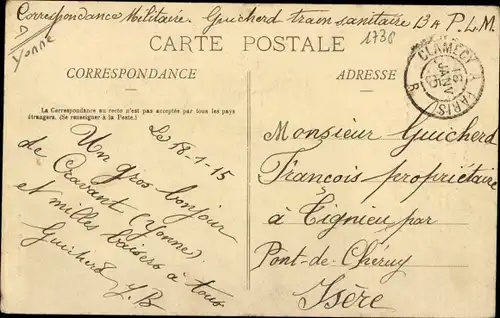 Correspondance Militaire. Guicherd train sanitaire 13 A P.L.M.
Yonne
1736
CARTE POSTALE
CORRESPONDANCE
ADRESSE
La Correspondance au recto n'est pas acceptée par tous les pays
étrangers. (Se renseigner à la Poste.)
CLAMECY A PARIS
18
JANV
15
Le 18-1-15
Un gros bonjour
de Cravant (Yonne)
et milles baisers à tous
Guicherd J.B
Monsieur Guicherd
François propriétaire
à Tignieu par
Pont-de-Chéruy
Isère